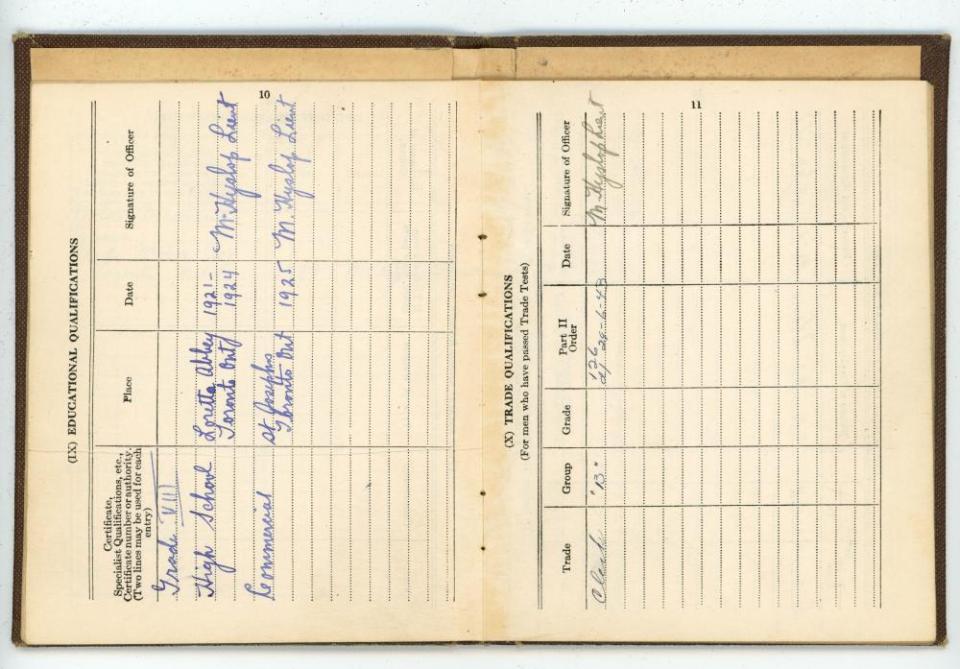 10
(IX) EDUCATIONAL QUALIFICATIONS
Certificate,
Specialist Qualifications, etc.,
Certificate number or authority.
(Two lines may be used for each
entry)
Place
Date
Signature of Officer
Grade VIII
High School Loretto Abbey 1921-
Toronto Ont 1924 M. Hyslop Lieut
Commercial St Josephs
Toronto Ont 1925 M. Hyslop Lieut
11
(X) TRADE QUALIFICATIONS
(For men who have passed Trade Tests)
Trade
Group
Grade
Part II
Order
Date
Signature of Officer
Clerk "B" 126
d/ 29-6-43 M Hyslop Lieut